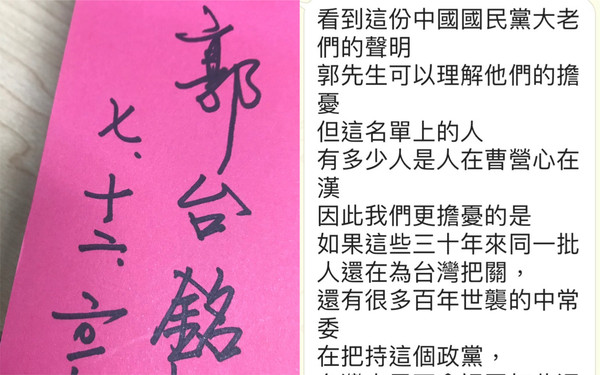 郭台銘
七、十六、二〇一
看到這份中國國民黨大老
們的聲明
郭先生可以理解他們的擔
憂
但這名單上的人
有多少人是人在曹營心在
漢
因此我們更擔憂的是
如果這些三十年來同一批
人還在為台灣把關，
還有很多百年世襲的中常
委
在把持這個政黨，